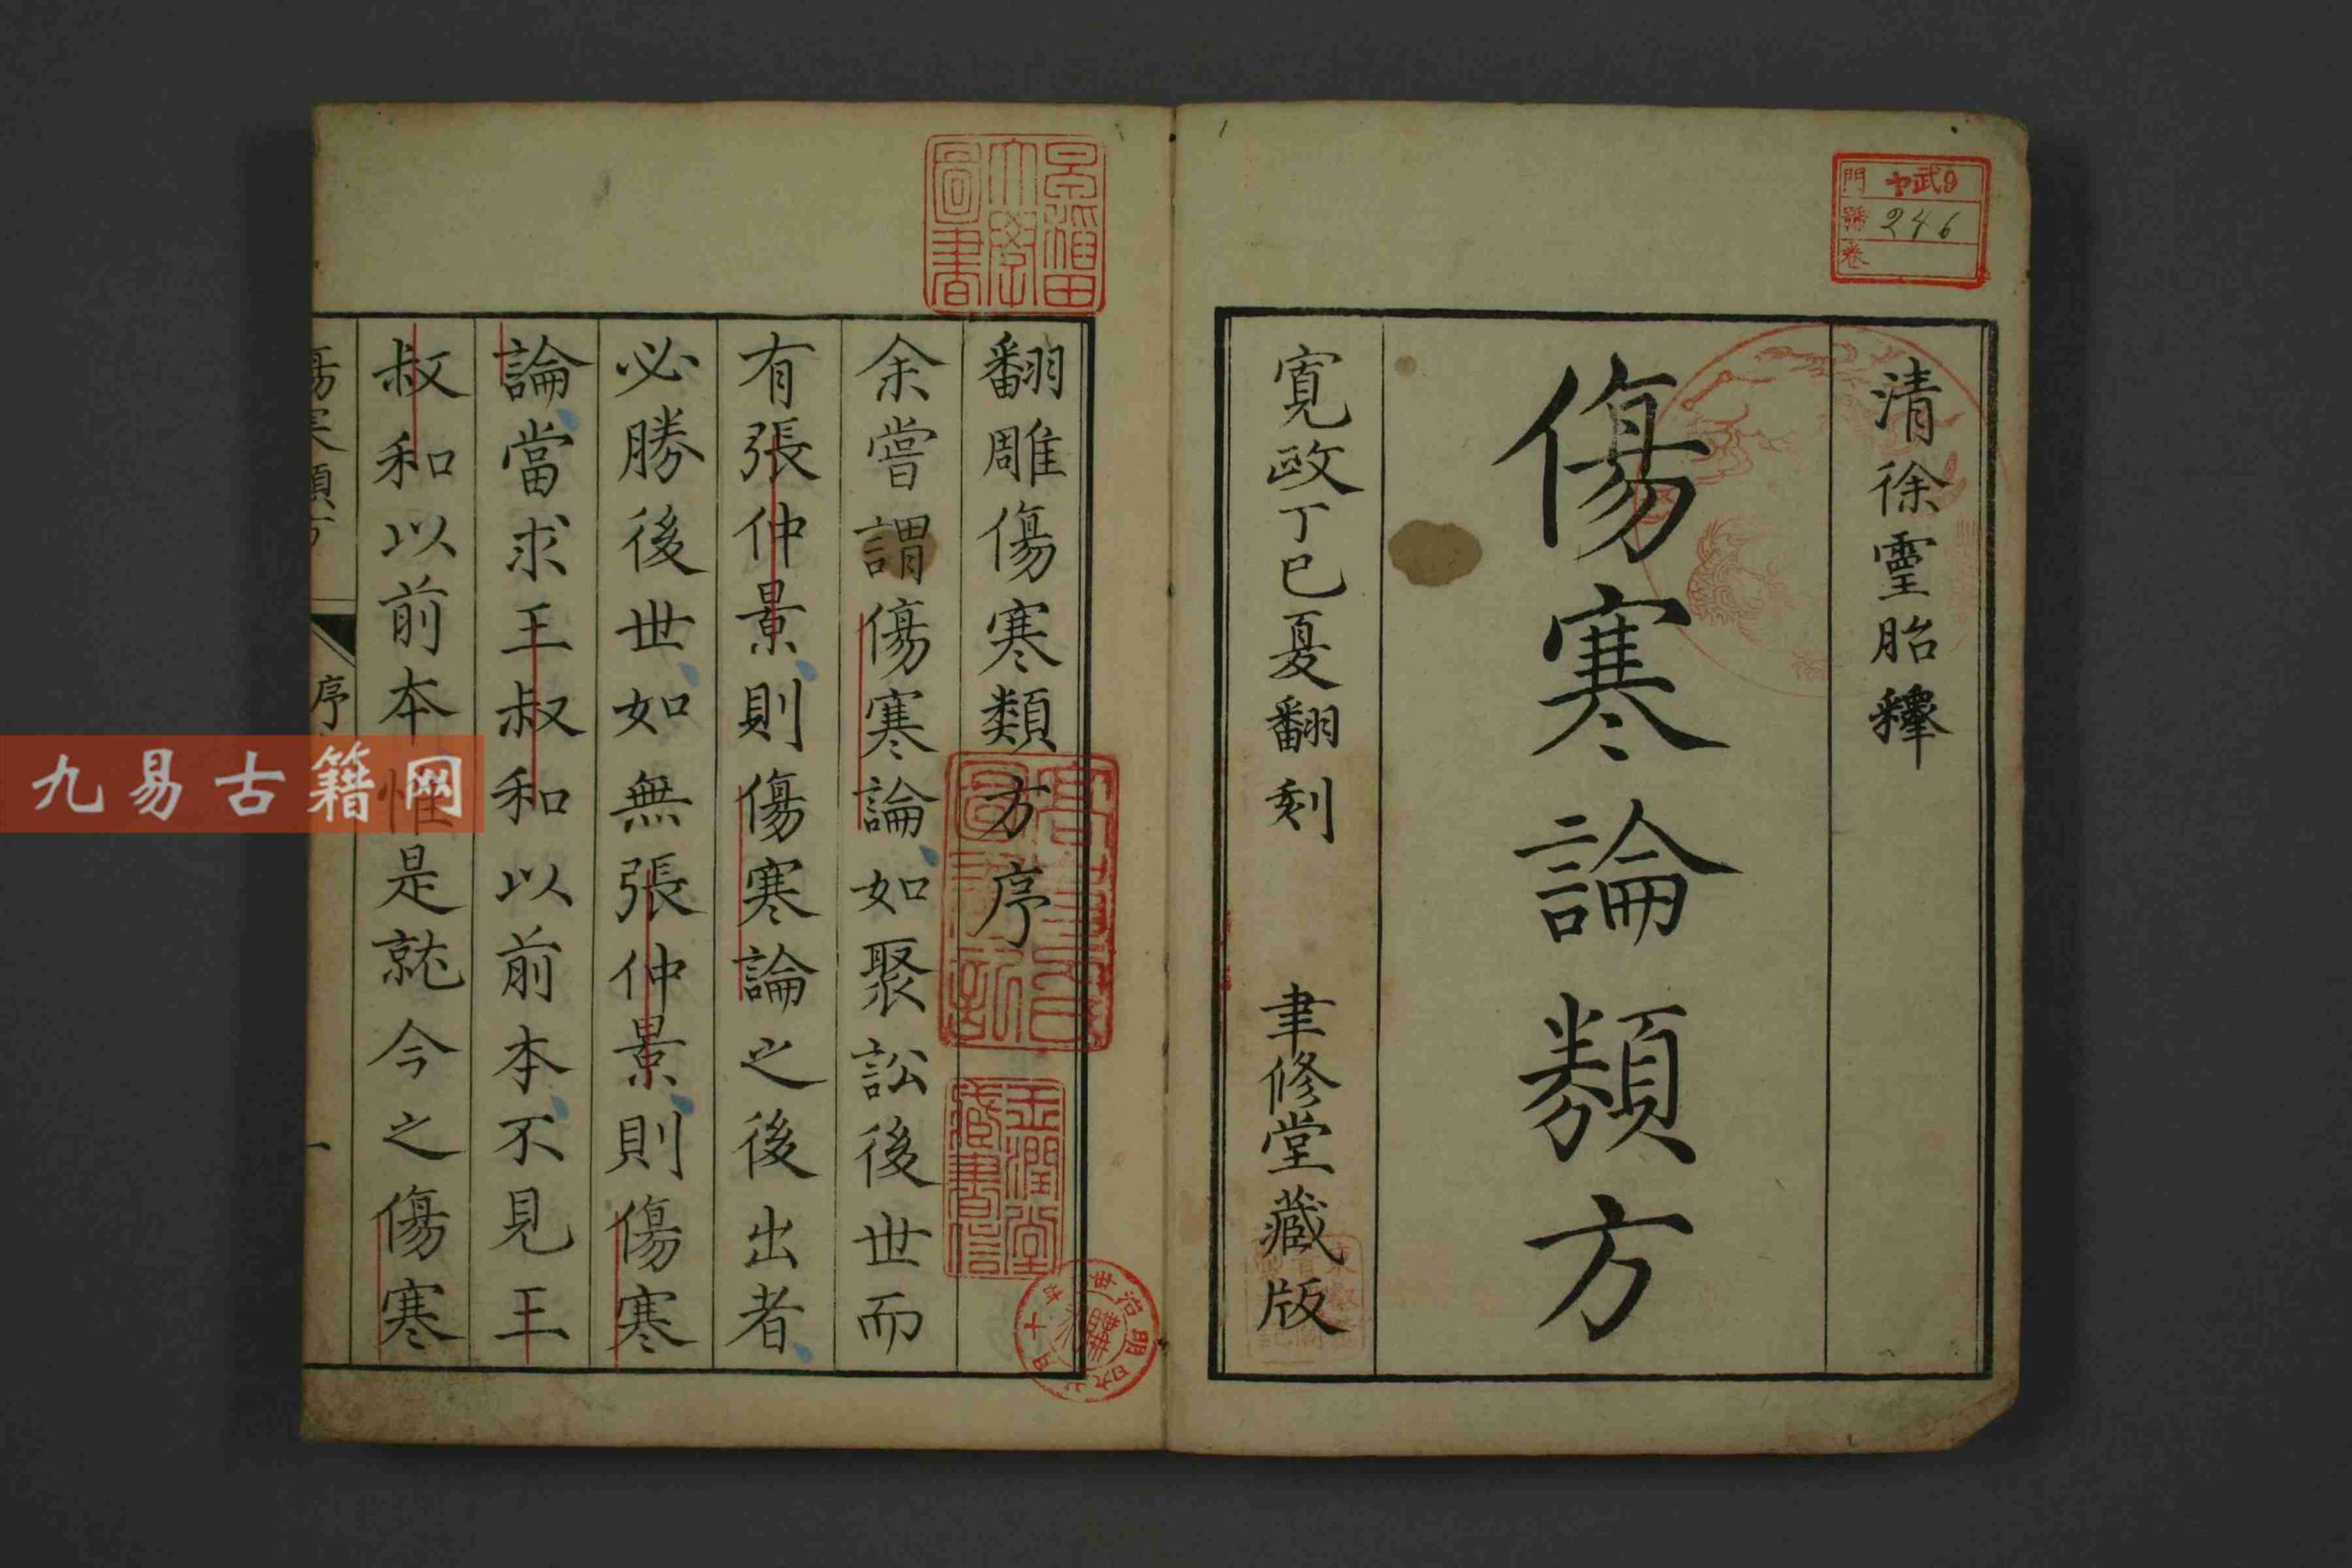 清徐靈胎釋
傷寒論類方
寛政丁巳夏翻刻 聿修堂藏版
門 武9
號 246
卷
翻雕傷寒類方序
余嘗謂傷寒論如聚訟後世而
有張仲景則傷寒論之後出者
必勝後世如無張仲景則傷寒
論當求王叔和以前本不見王
叔和以前本惟是就今之傷寒
傷寒類方 序 一
圖書
玉潤堂
九易古籍网